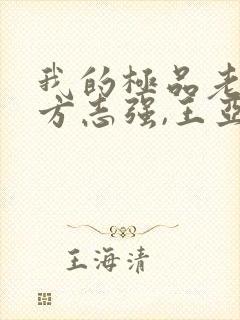 我的極品老
方志强,王亞
王海清